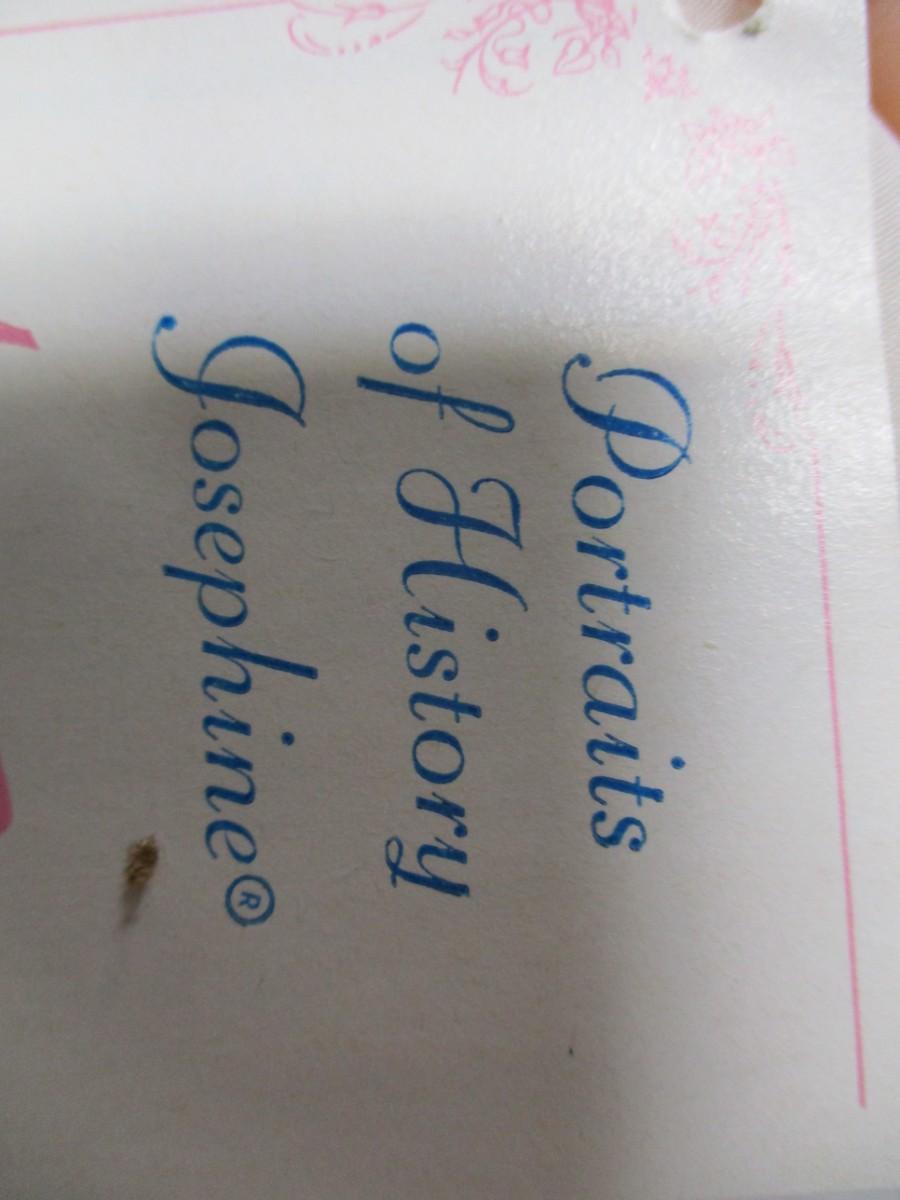 Portraits
of History
Josephine®